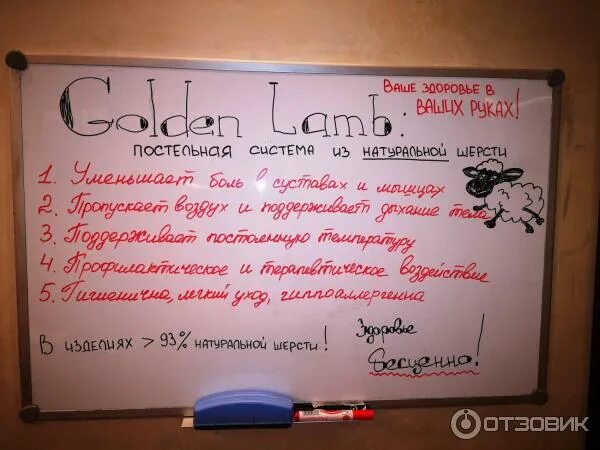 Golden Lamb:
ВАШЕ ЗДОРОВЬЕ В
ВАШИХ РУКАХ!
ПОСТЕЛЬНАЯ СИСТЕМА ИЗ НАТУРАЛЬНОЙ ШЕРСТИ
1. Уменьшает боль в суставах и мышцах
2. Пропускает воздух и поддерживает дыхание тела
3. Поддерживает постоянную температуру
4. Профилактическое и терапевтическое воздействие
5. Гигиенична, легкий уход, гиппоаллергенна
В ИЗДЕЛИЯХ > 93% НАТУРАЛЬНОЙ ШЕРСТИ!
Здоровье
бесценно!
ОТЗОВИК